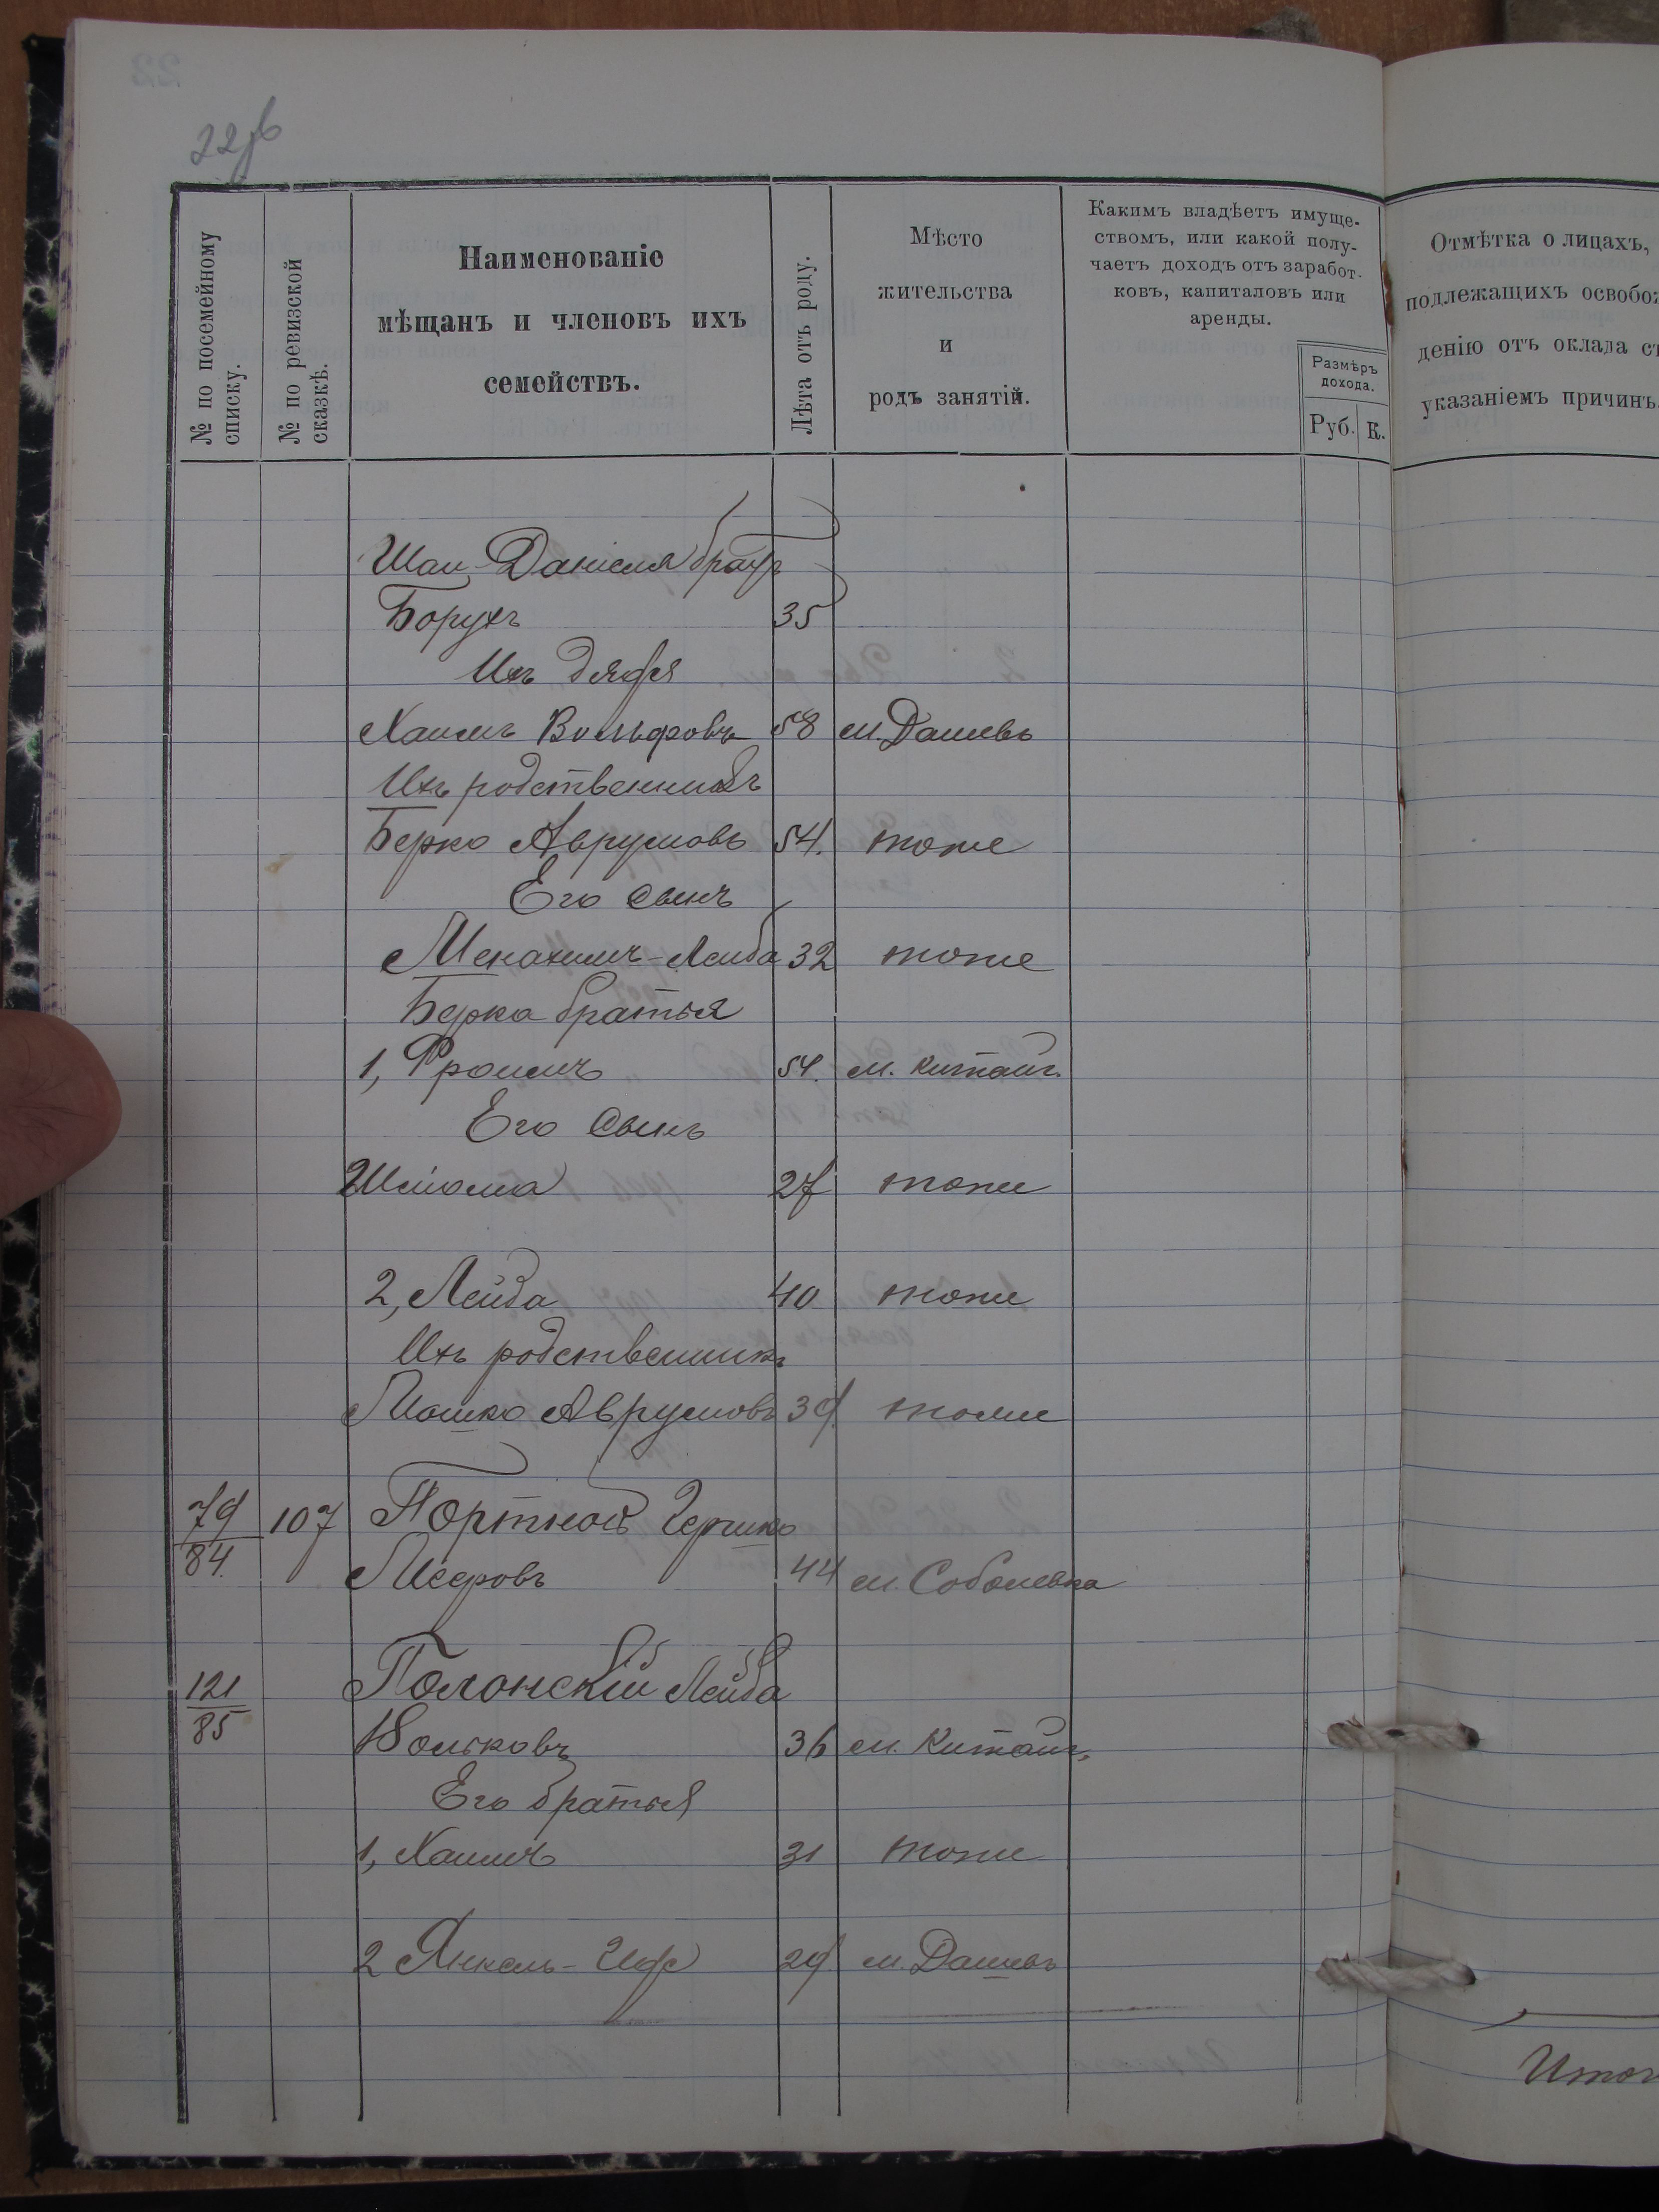 22
№ по посемейному
списку.
№ по ревизской
сказкѣ.
Наименованіе
мѣщанъ и членовъ ихъ
семействъ.
Лѣта отъ роду.
Мѣсто
жительства
и
родъ занятій.
Какимъ владѣетъ имуще-
ствомъ, или какой полу-
чаетъ доходъ отъ заработ-
ковъ, капиталовъ или
аренды.
Размѣръ
дохода.
Руб. К.
Отмѣтка о лицахъ,
подлежащихъ освобо
денію отъ оклада с
указаніемъ причинъ.
Даніеля братъ
Борухъ 35
Ихъ дядя
Хаимъ Вольфовъ 58 м. Дашевъ
Ихъ родственникъ
Берко Аврумовъ 54. тоже
Его сынъ
Менахимъ-Лейба 32 тоже
Берка братья
1, Фроимъ 54. м. Китайг.
Его сынъ
Шлiома 27 тоже
2, Лейба 40 тоже
Ихъ родственникъ
Мошко Аврумовъ 39. тоже
79/84. 107 Портной Гершко
Мееровъ 44 м. Соболевка
121/85 Полонскій Лейба
Вольковъ 36 м. Китайг.
Его братья
1, Хаимъ 31 тоже
2 Янкель- 29 м. Дашевъ
Итог